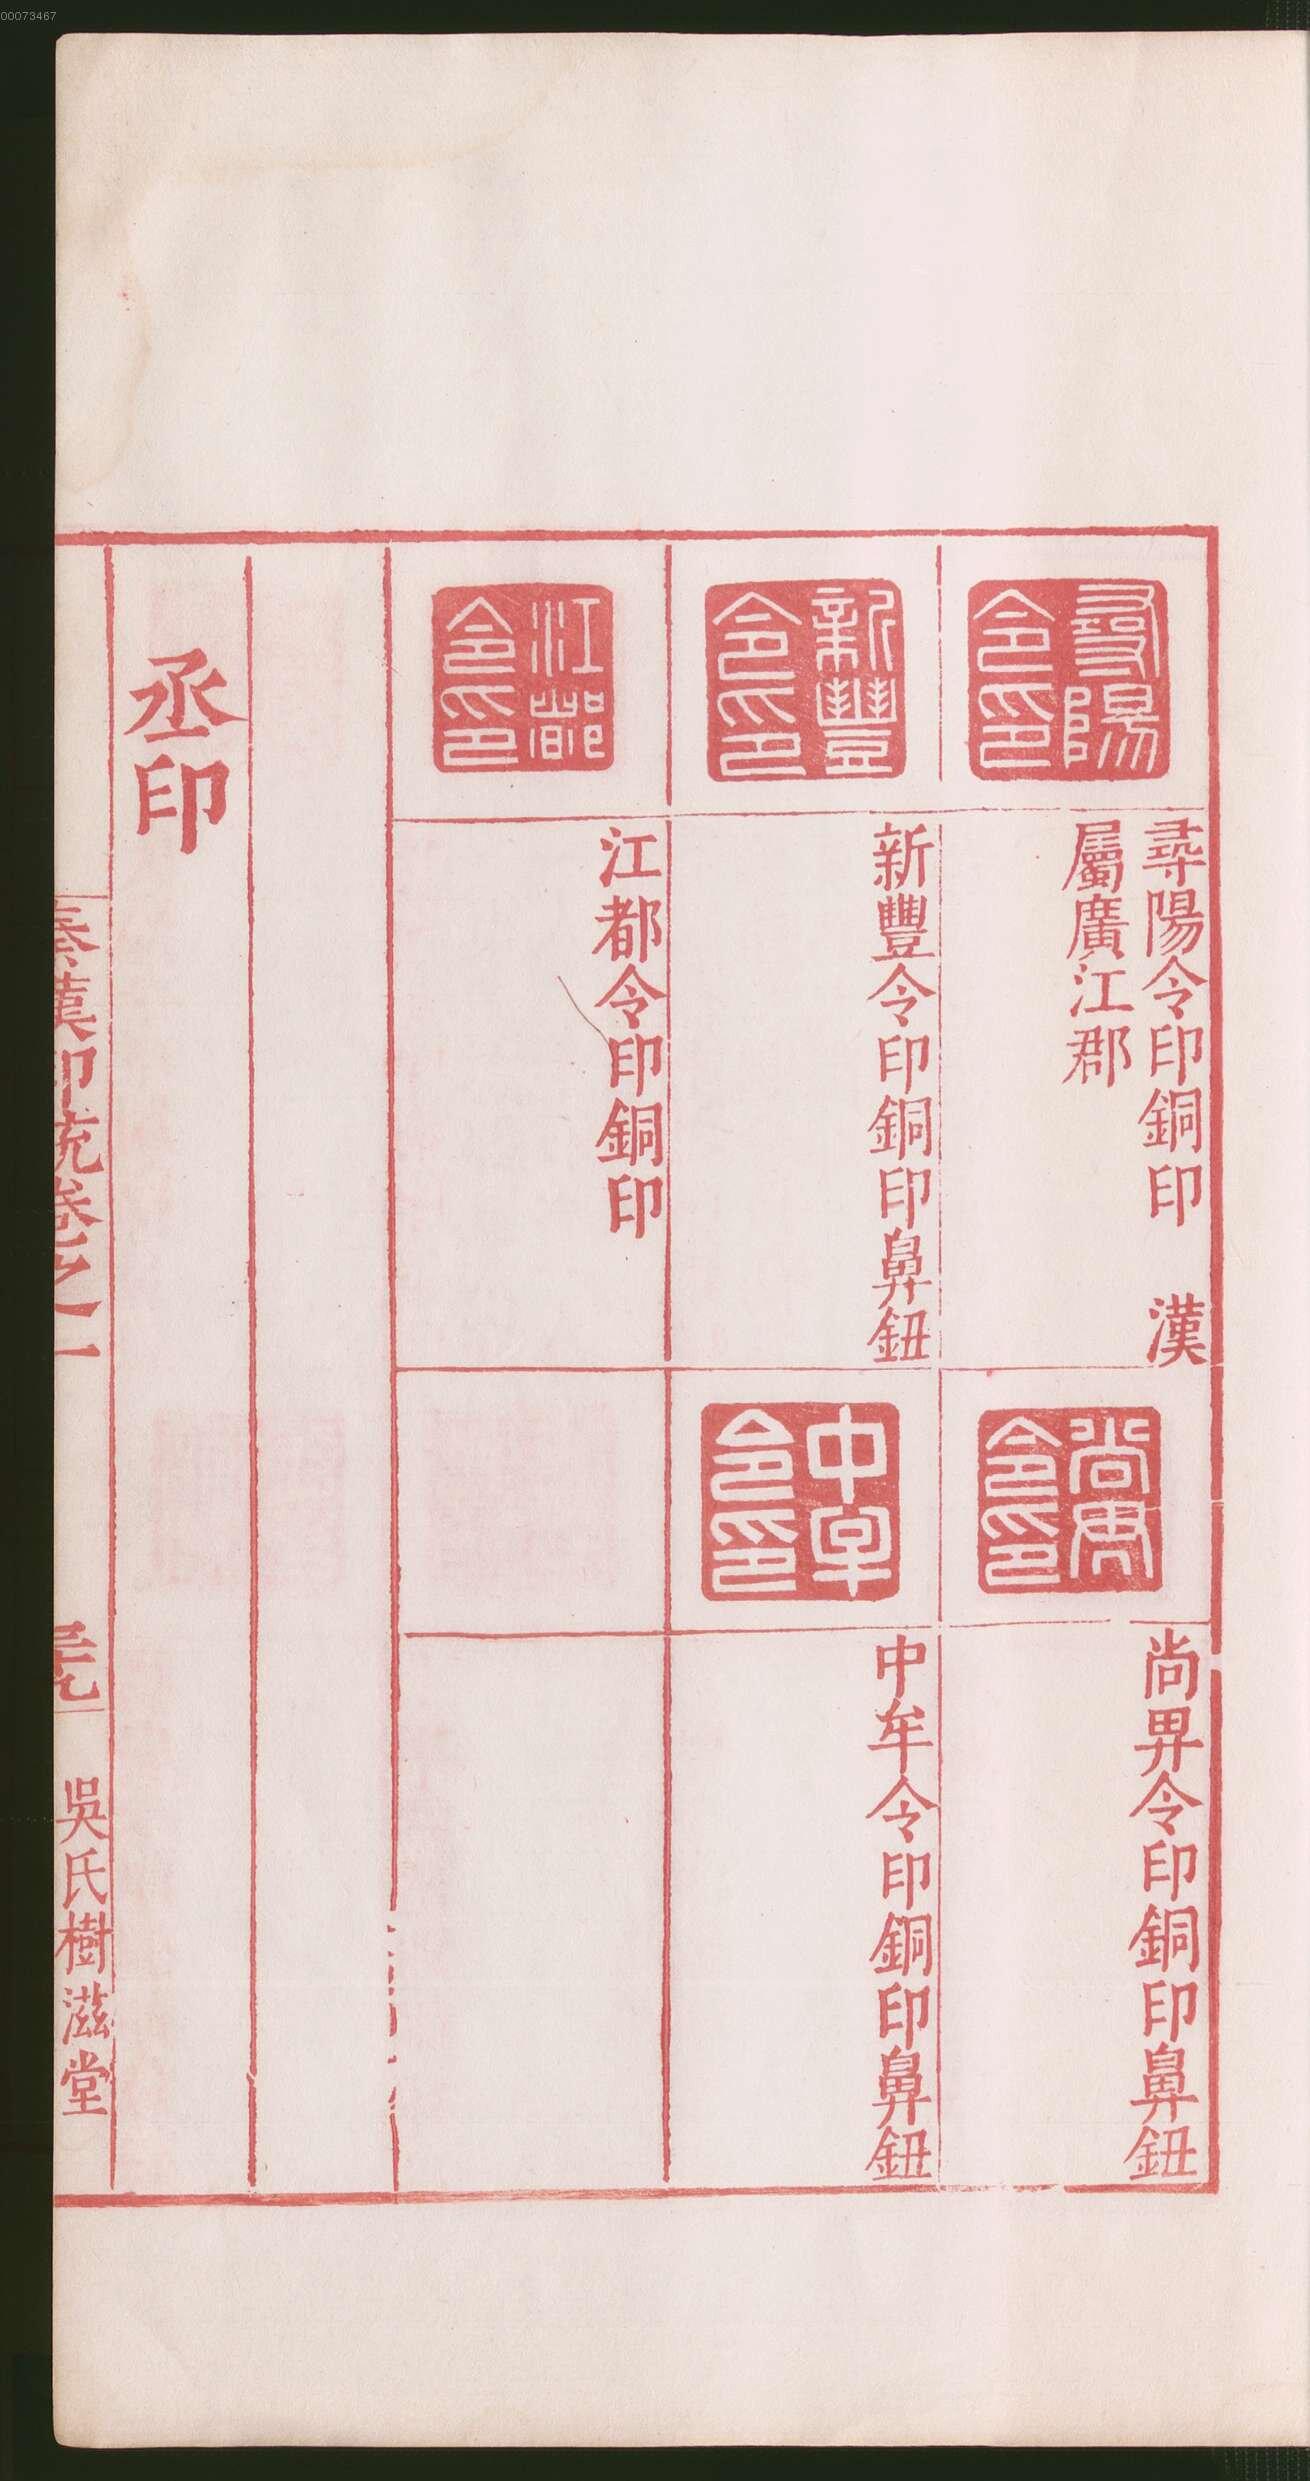 00073467
尋陽令印
尋陽令印銅印 漢
屬廣江郡
令印
尚畀令印銅印鼻鈕
新豐令印
新豐令印銅印鼻鈕
中牟令印
中牟令印銅印鼻鈕
江都令印
江都令印銅印
丞印
秦漢印統卷之一
吳氏樹滋堂